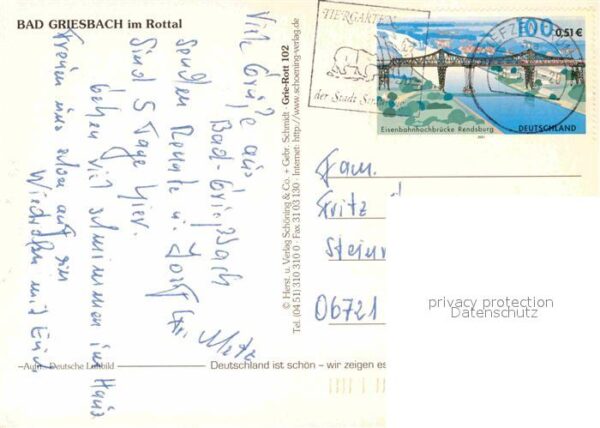 BAD GRIESBACH im Rottal
Viele Grüße aus
Bad-Griesbach
senden Renate u. Horst
Sind 5 Tage hier.
Gehen viel schwimmen im Haus
Freuen uns schon auf ein
Wiedersehen mit Euch
© Herst. u. Verlag Schöning & Co. + Gebr. Schmidt · Grie-Rott 102
Tel. (04 51) 310 310 0 · Fax 31 03 130 · Internet: http://www.schoening-verlag.de
TIERGARTEN
der Stadt
100
0,51 €
Eisenbahnhochbrücke Rendsburg
DEUTSCHLAND
Fam.
Fritz
06721
privacy protection
Datenschutz
Deutsche Luftbild
Deutschland ist schön – wir zeigen es